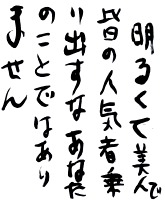 明るくて美人で
皆の人気者乗
り出すなあなた
のことではあり
ません